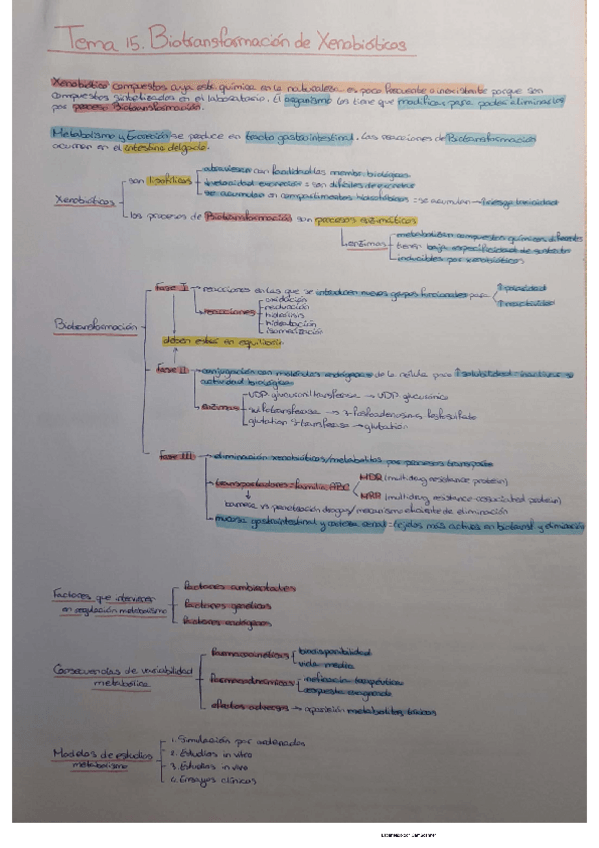 Tema 15. Biotransformación de Xenobióticos
Xenobiótico compuestos cuya estr. química en la naturaleza es poco frecuente o inexistente porque son
compuestos sintetizados en el laboratorio. El organismo los tiene que modificar para poder eliminarlos
por proceso Biotransformación.
Metabolismo y Excreción se produce en tracto gastrointestinal. Las reacciones de Biotransformación
ocurren en el intestino delgado.
Xenobióticos
son lipofílicos
atraviesan con facilidad las membr. biológicas
↓ velocidad excreción = son difíciles de excretar
se acumulan en compartimentos hidrofóbicos = se acumulan → riesgo toxicidad
los procesos de Biotransformación son procesos enzimáticos
enzimas
metabolizan compuestos químicos diferentes
tienen baja especificidad de sustrato
inducibles por xenobióticos
Biotransformación
Fase I → reacciones en las que se introducen nuevos grupos funcionales para
↑ polaridad
↑ reactividad
reacciones
oxidación
reducción
hidrólisis
hidratación
isomerización
deben estar en equilibrio
Fase II → conjugación con moléculas endógenas de la célula para ↑ solubilidad = inactivar su
actividad biológica
enzimas
UDP glucuroniltransferasa → UDP glucurónico
sulfotransferasa →
glutation S-transferasa → glutatión
Fase III → eliminación xenobióticos/metabolitos por procesos transporte
transportadores = familia ABC
MDR (multidrug resistance protein)
MRP (multidrug resistance-associated protein)
barrera vs penetración drogas/mecanismo eficiente de eliminación
mucosa gastrointestinal y corteza renal = tejidos más activos en biotransf y eliminación
Factores que intervienen
en regulación metabolismo
Factores ambientales
Factores genéticos
Factores endógenos
Consecuencias de variabilidad
metabólica
farmacocinéticas
biodisponibilidad
vida media
farmacodinámicas
ineficacia terapéutica
respuesta exagerada
efectos adversos → aparición metabolitos tóxicos
Modelos de estudios
metabolismo
1. Simulación por ordenador
2. Estudios in vitro
3. Estudios in vivo
4. Ensayos clínicos